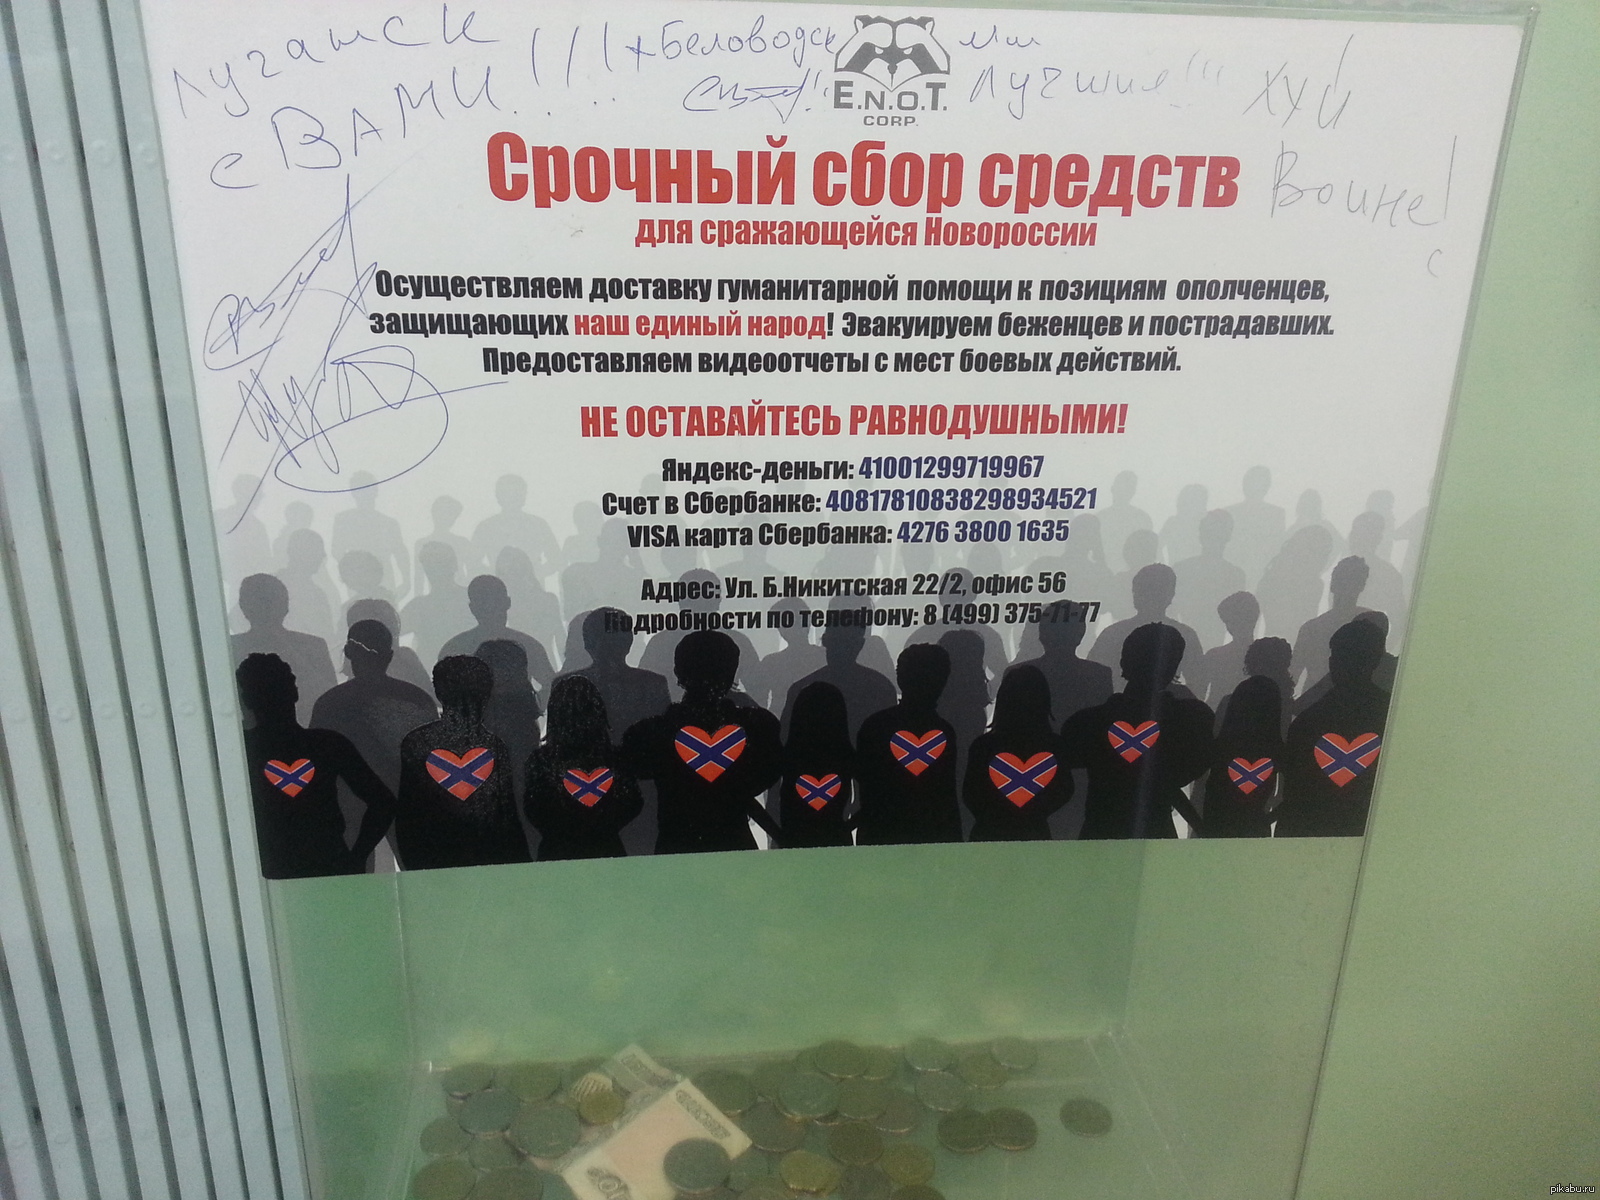 Луганск
с ВАМИ!!!
+ Беловодск
E.N.O.T.
CORP.
Мы
Лучшие!!!
ХУЙ
Войне!
Срочный сбор средств
для сражающейся Новороссии
Осуществляем доставку гуманитарной помощи к позициям ополченцев,
защищающих наш единый народ! Эвакуируем беженцев и пострадавших.
Предоставляем видеоотчеты с мест боевых действий.
НЕ ОСТАВАЙТЕСЬ РАВНОДУШНЫМИ!
Яндекс-деньги: 41001299719967
Счет в Сбербанке: 40817810838298934521
VISA карта Сбербанка: 4276 3800 1635
Адрес: Ул. Б.Никитская 22/2, офис 56
Подробности по телефону: 8 (499) 375-71-77
pikabu.ru